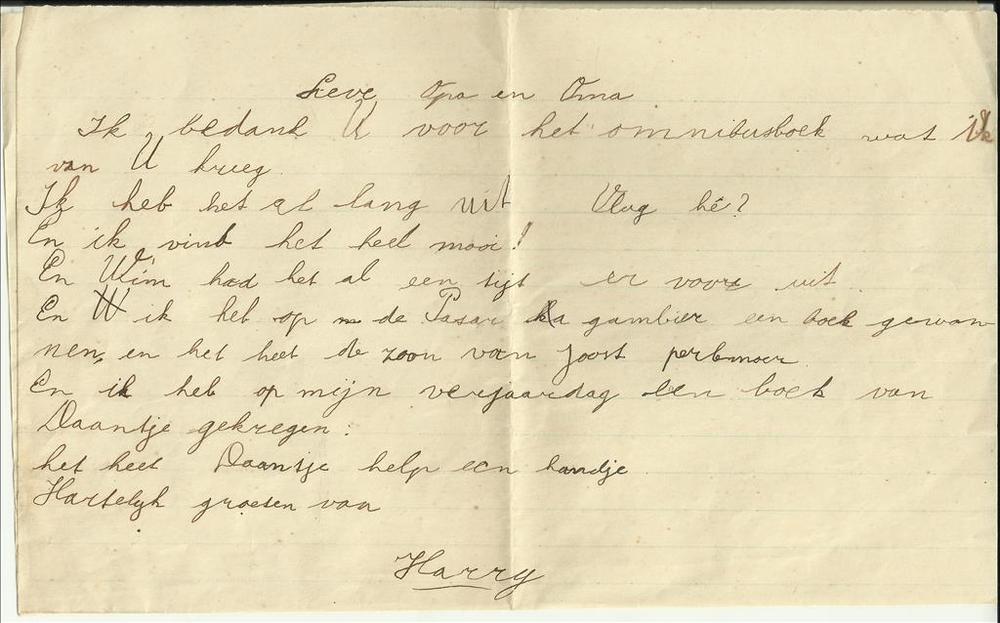 Lieve Opa en Oma
Ik bedank U voor het omnibusboek wat ik
van U kreeg.
Ik heb het al lang uit Vlug hê?
En ik vind het heel mooi!
En Wim had het al een tijt er voor uit.
En ik heb op de Pasar gambier een boek gewon
nen, en het heet de zoon van Joost perlemoer
En ik heb op mijn verjaardag een boek van
Daantje gekregen:
het heet Daantje help een handje
Hartelyk groeten van
Harry